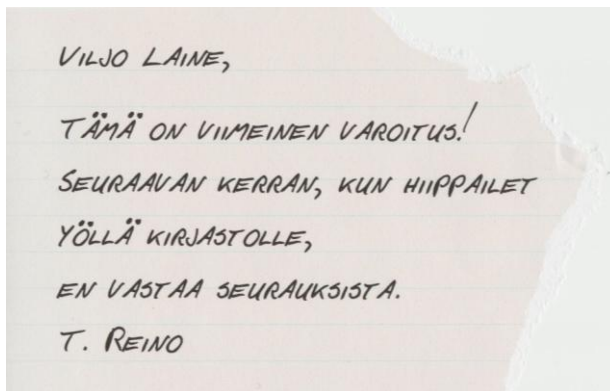 VILJO LAINE,
TÄMÄ ON VIIMEINEN VAROITUS!
SEURAAVAN KERRAN, KUN HIIPPAILET
YÖLLÄ KIRJASTOLLE,
EN VASTAA SEURAUKSISTA.
T. REINO